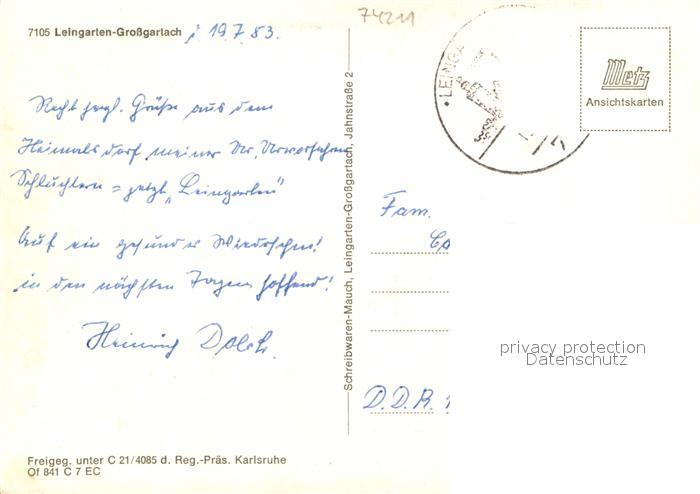 7105 Leingarten-Großgartach, 19.7.83.
74211
Recht herzl. Grüße aus dem
Heimatsdorf meiner Ur, Urvorfahren
Schluchtern = jetzt „Leingarten"
Auf ein gesundes Wiedersehen!
in den nächsten Tagen hoffend!
Heinrich
Schreibwaren-Mauch, Leingarten-Großgartach, Jahnstraße 2
LEINGA
Metz
Ansichtskarten
Fam.
D.D.R.
privacy protection
Datenschutz
Freigeg. unter C 21/4085 d. Reg.-Präs. Karlsruhe
Of 841 C 7 EC